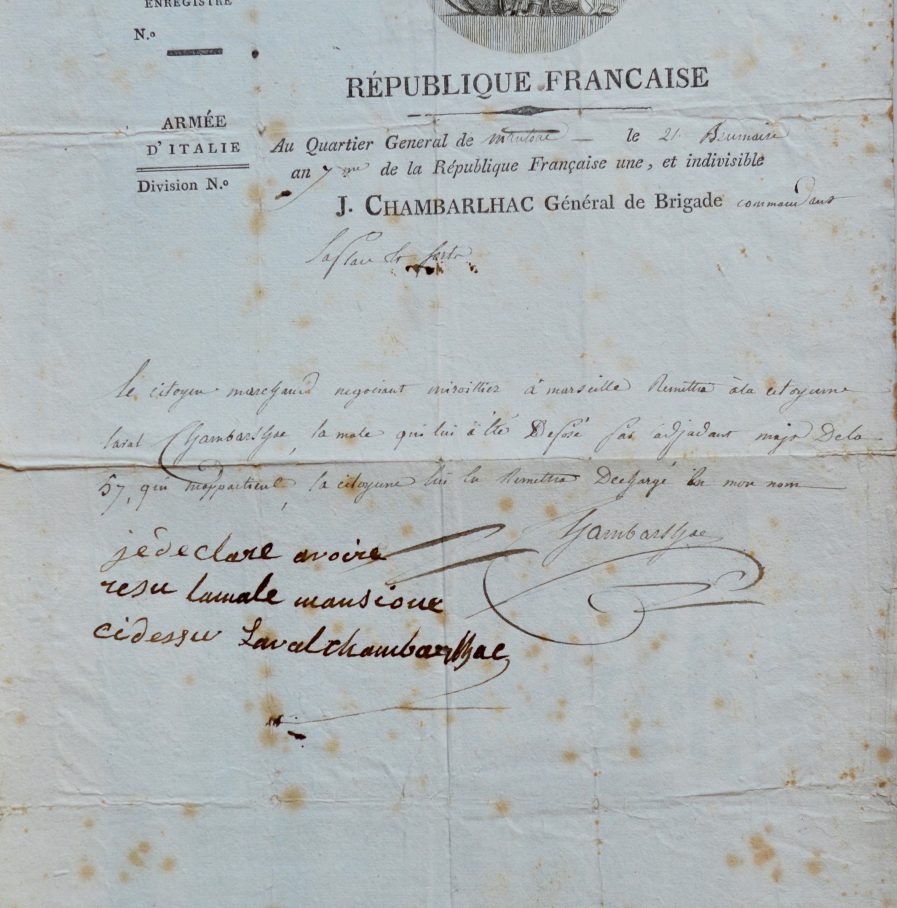 ENREGISTRÉ
N.º
RÉPUBLIQUE FRANCAISE
ARMÉE
D'ITALIE
Division N.º
Au Quartier General de le 21 Brumaire
an 7 me de la République Française une, et indivisible
J. CHAMBARLHAC Général de Brigade commandant
la place
le citoyen marchand negociant miroittier à marseille Remettra à la citoyenne
laval Chambarlhac, la male qui lui à été Deposé par adjudant major De la
57, qui m'appartient, la citoyene lui en Remettra Decharge en mon nom
Chambarlhac
jé declare avoire
resu lamale mansione
cidessu Laval chambarlhac